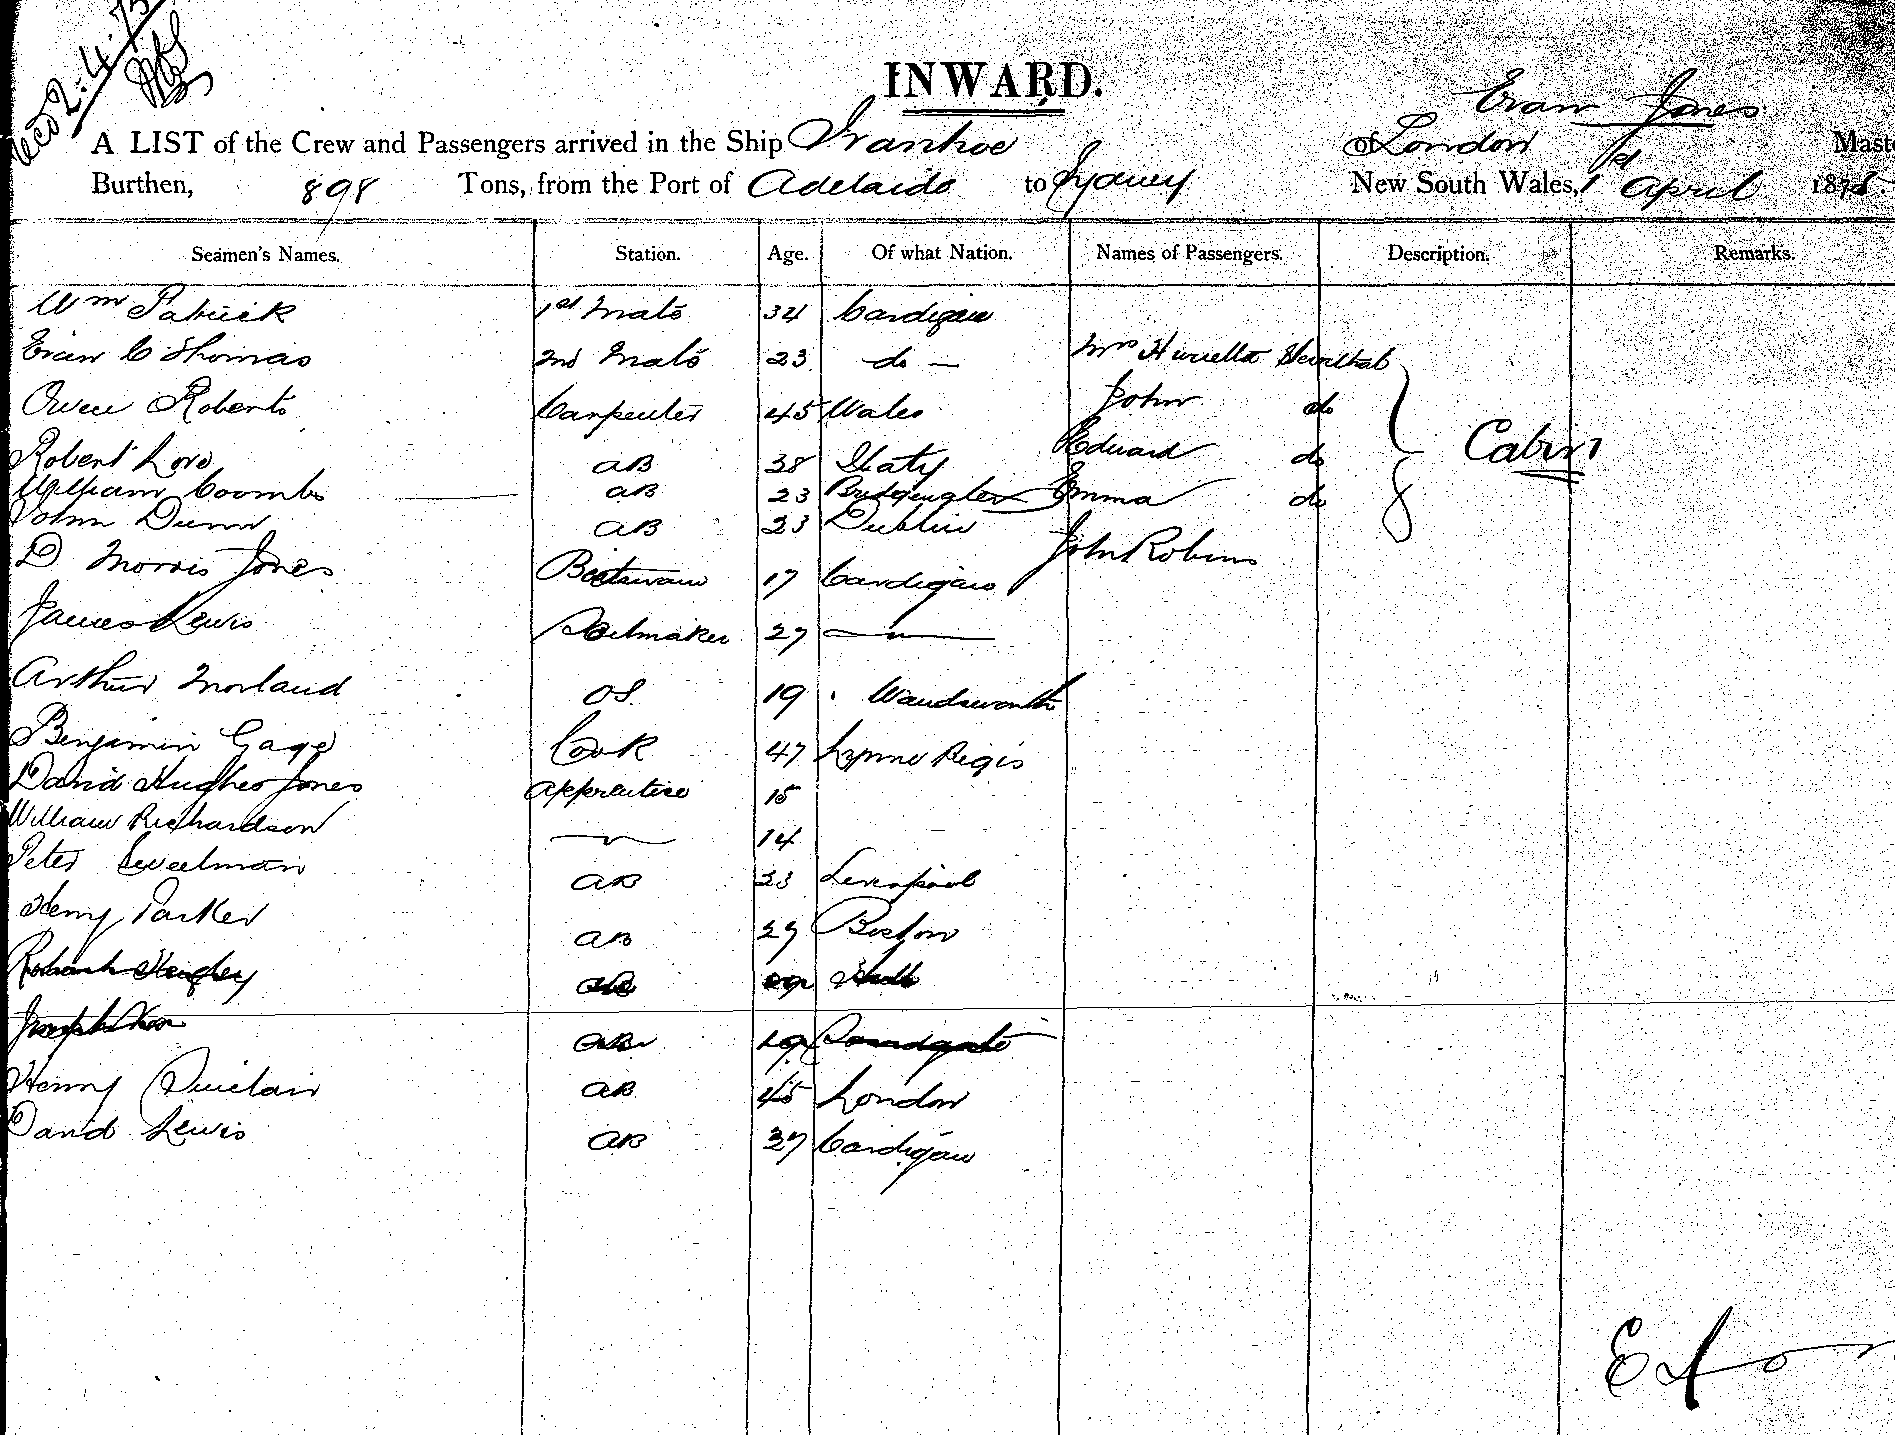 Recd 2.4.75
INWARD.
Evan Jones
A LIST of the Crew and Passengers arrived in the Ship Ivanhoe of London Maste
Burthen, 898 Tons, from the Port of Adelaide to Sydney New South Wales, 1st April 1875.
Seamen's Names. Station. Age. Of what Nation. Names of Passengers. Description. Remarks.
Wm Patrick 1st Mate 34 Cardigan
Evan C Thomas 2nd Mate 23 do — Mrs
Owen Roberts Carpenter 45 Wales John do
Robert Love AB 38 Italy Edward do Cabin
William Coombs AB 23 Emma do
John Dunn AB 23 Dublin
D Morris Jones Boatswain 17 Cardigan John Robins
James Lewis Sailmaker 27 — " —
Arthur Morland OS. 19 Wandsworth
Benjamin Gage Cook 47 Lyme Regis
David Hughes Jones Apprentice 15
William Richardson — " — 14
Peter Sweetman AB 23 Liverpool
Henry Parker AB 29 Boston
AB Hull
Joseph AB 19 Ramsgate
Henry Sinclair AB 45 London
David Lewis AB 37 Cardigan